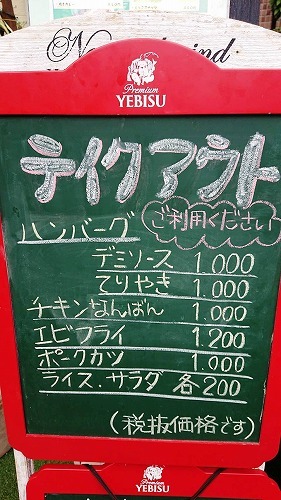 Premium
YEBISU
テイクアウト
ご利用ください
ハンバーグ
デミソース 1.000
てりやき 1.000
チキンなんばん 1.000
エビフライ 1.200
ポークカツ 1.000
ライス・サラダ 各200
(税抜価格です)
Premium
YEBISU